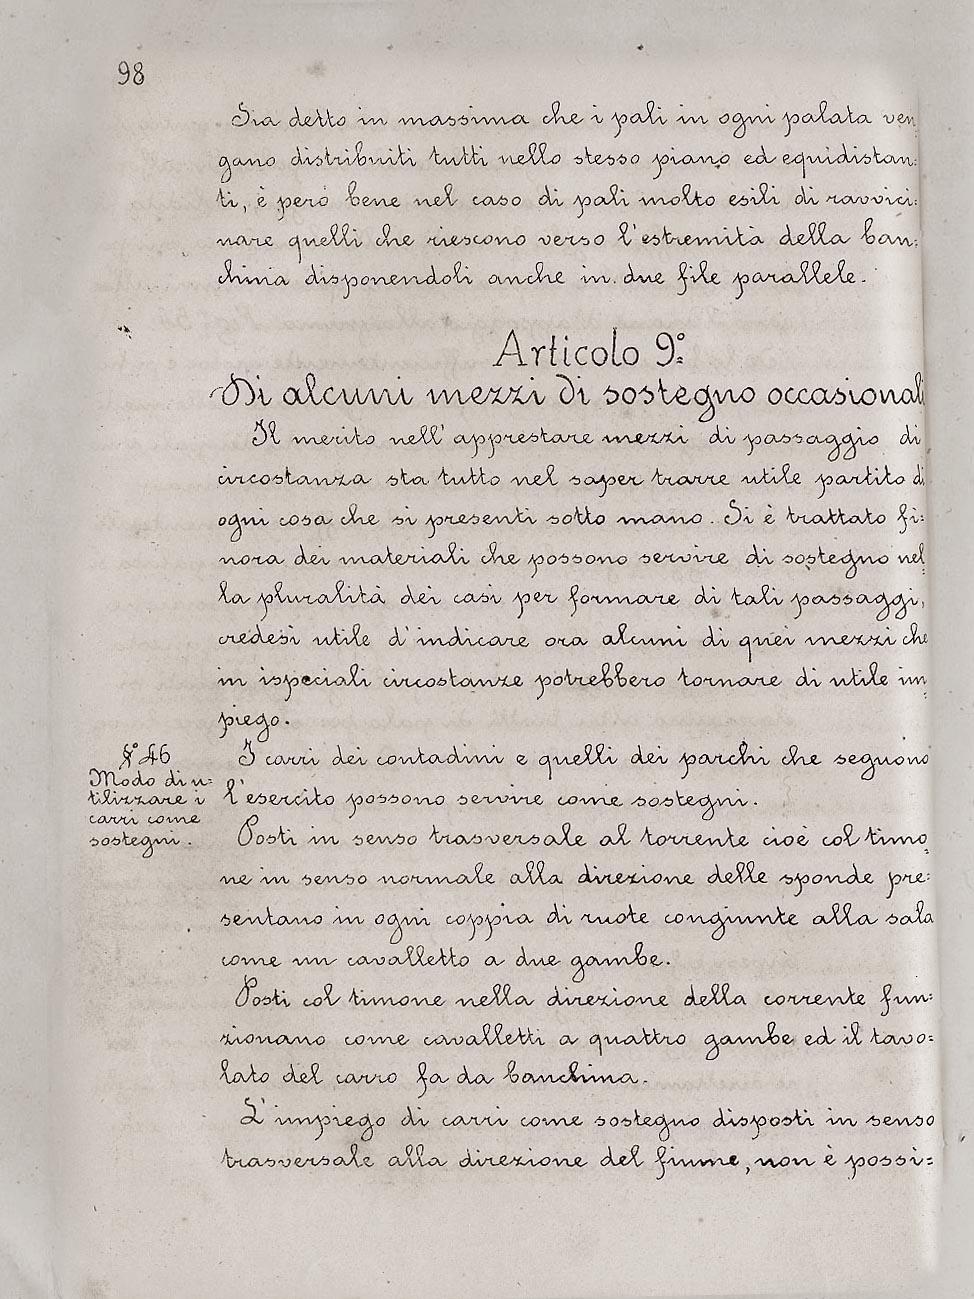 98
Sia detto in massima che i pali in ogni palata ven
gano distribuiti tutti nello stesso piano ed equidistan:
ti, è però bene nel caso di pali molto esili di ravvici:
nare quelli che riescono verso l'estremità della ban:
china disponendoli anche in due file parallele.
Articolo 9°
Di alcuni mezzi di sostegno occasionali
Il merito nell' apprestare mezzi di passaggio di
circostanza sta tutto nel saper trarre utile partito di
ogni cosa che si presenti sotto mano. Si è trattato fi:
nora dei materiali che possono servire di sostegno nel
la pluralità dei casi per formare di tali passaggi,
credesi utile d'indicare ora alcuni di quei mezzi che
in ispeciali circostanze potrebbero tornare di utile im
piego.
§° 46
Modo di u:
tilizzare i
carri come
sostegni.
I carri dei contadini e quelli dei parchi che seguono
l'esercito possono servire come sostegni.
Posti in senso trasversale al torrente cioè col timo
ne in senso normale alla direzione delle sponde pre:
sentano in ogni coppia di ruote congiunte alla sala
come un cavalletto a due gambe.
Posti col timone nella direzione della corrente fun:
zionano come cavalletti a quattro gambe ed il tavo=
lato del carro fa da banchina.
L'impiego di carri come sostegno disposti in senso
trasversale alla direzione del fiume, non è possi=